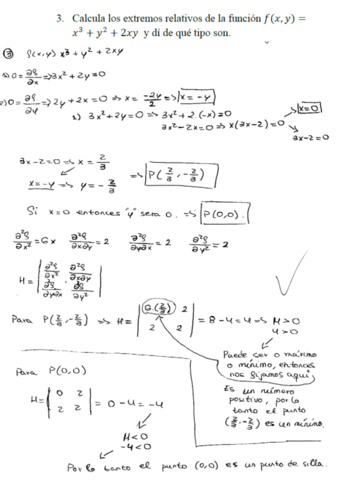 3. Calcula los extremos relativos de la función f(x, y) =
x³ + y² + 2xy y dí de qué tipo son.
③ f(x,y) x³ + y² + 2xy
1) 0 = ∂f/∂x ⇒ 3x² + 2y = 0
2) 0 = ∂f/∂y ⇒ 2y + 2x = 0 ⇒ x = -2y/2 ⇒ x = -y
1) 3x² + 2y = 0 ⇒ 3x² + 2·(-x) = 0 x=0
3x² - 2x = 0 ⇒ x(3x-2) = 0
3x-2=0
3x-2=0 ⇒ x = 2/3
x = -y ⇒ y = -2/3 ⇒ P(2/3, -2/3)
Si x=0 entonces "y" sera 0. ⇒ P(0,0).
∂²f/∂x² = 6x ∂²f/∂x∂y = 2 ∂²f/∂y∂x = 2 ∂²f/∂y² = 2
H = | ∂²f/∂x² ∂²f/∂x∂y |
| ∂²f/∂y∂x ∂²f/∂y² |
Para P(2/3, -2/3) ⇒ H = | 6·(2/3) 2 |
| 2 2 | = 8 - 4 = 4 ⇒ H > 0
4 > 0
Puede ser o máximo
o mínimo, entonces
nos fijamos aquí
Es un número
positivo, por lo
tanto el punto
(2/3, -2/3) es un mínimo.
Para P(0,0)
H = | 0 2 |
| 2 2 | = 0 - 4 = -4
H < 0
-4 < 0
Por lo tanto el punto (0,0) es un punto de silla.